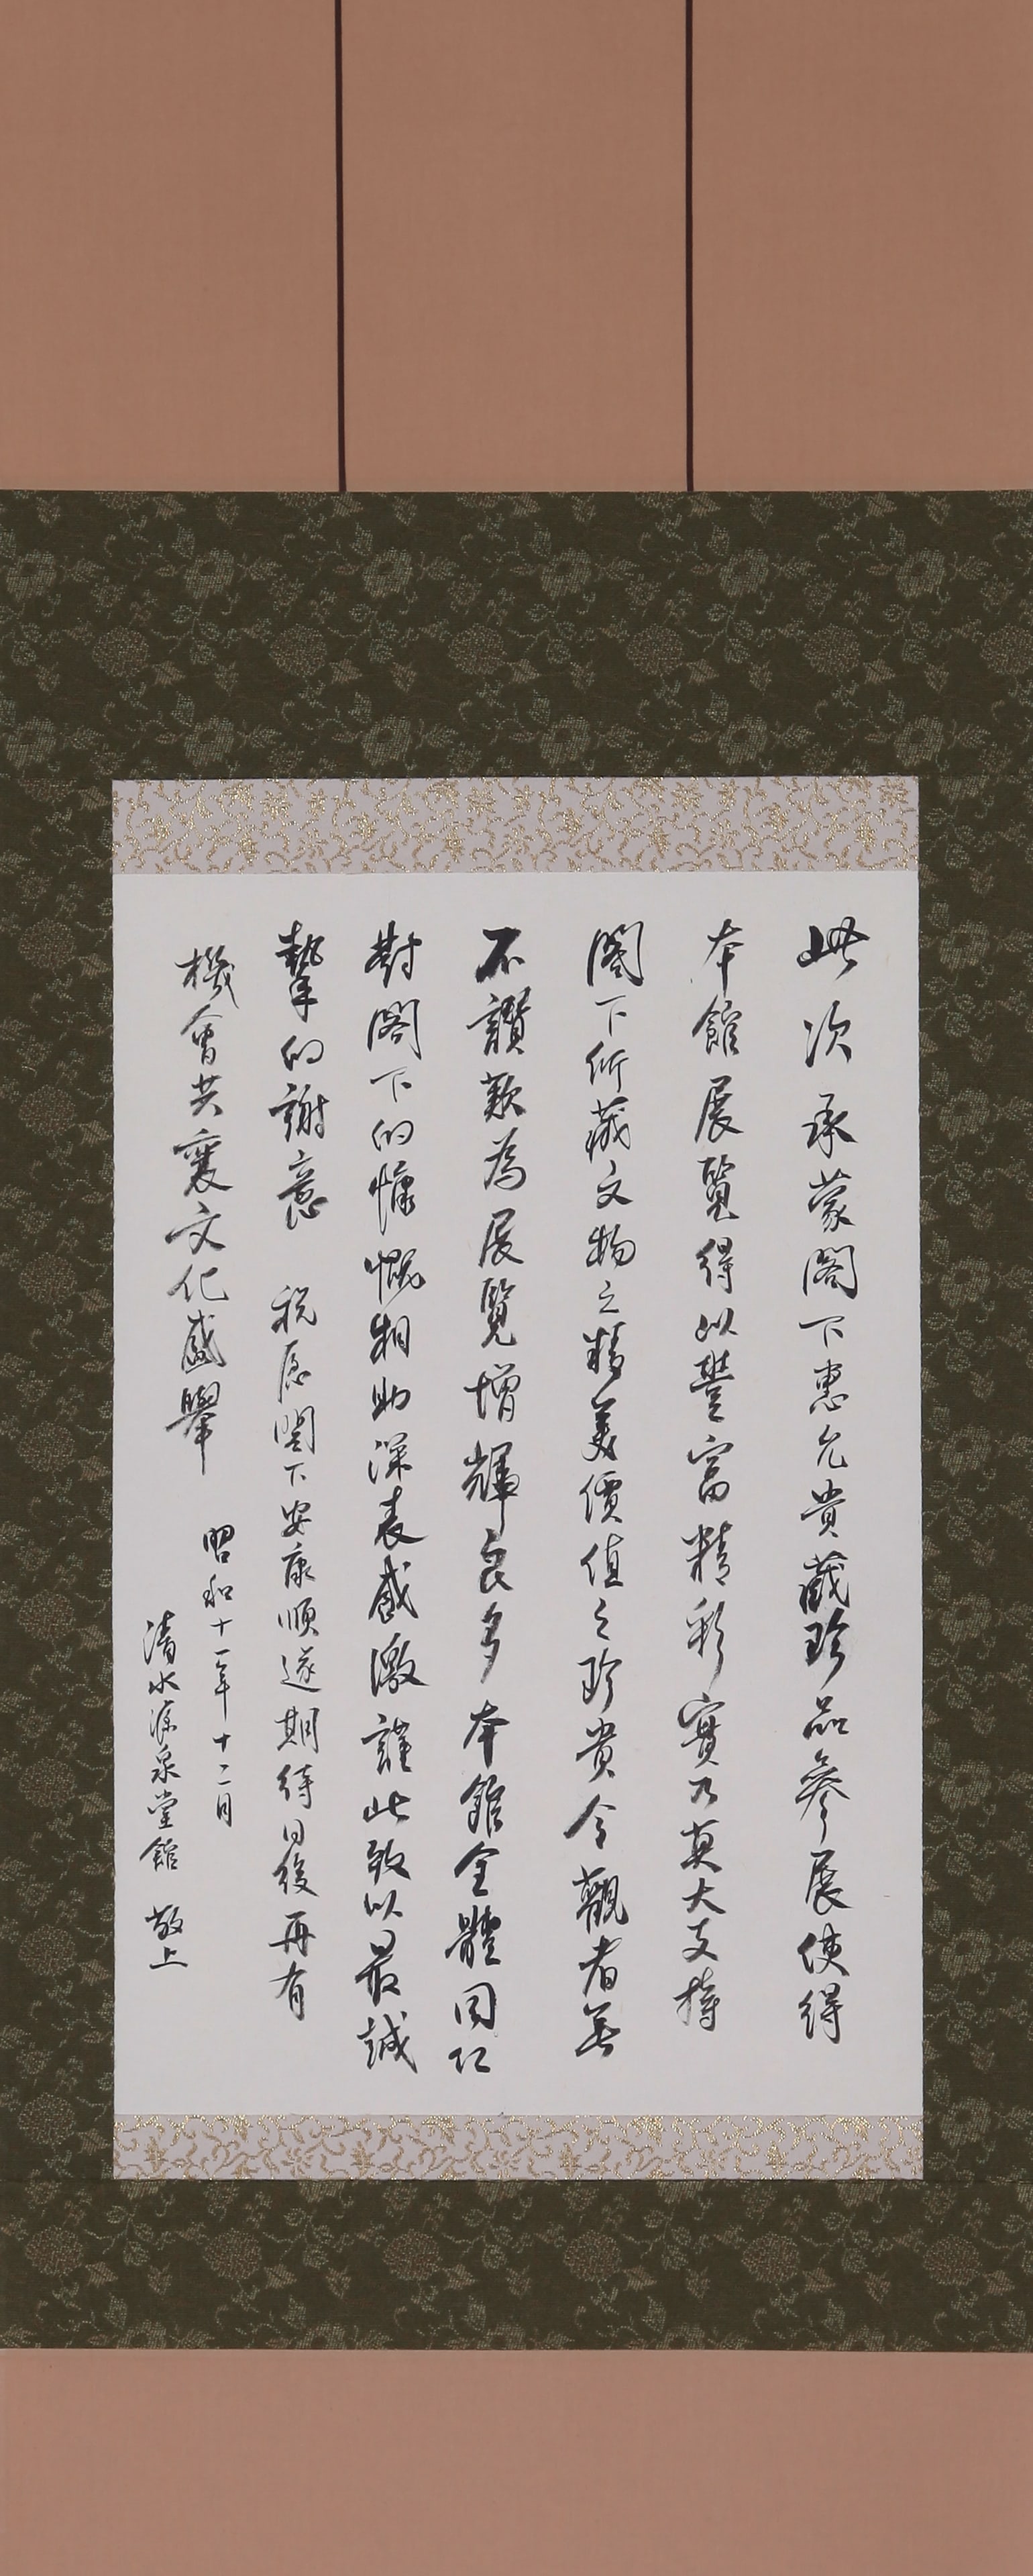 此次承蒙閣下惠允貴藏珍品參展使得
本館展覽得以豐富精彩實乃莫大支持
閣下所藏文物之精美價值之珍貴令觀者無
不讚歎為展覽增輝良多本館全體同仁
對閣下的慷慨相助深表感激謹此致以最誠
摯的謝意 祝愿閣下安康順遂期待日後再有
機會共襄文化盛舉
昭和十一年十二月
清水源泉堂館 敬上